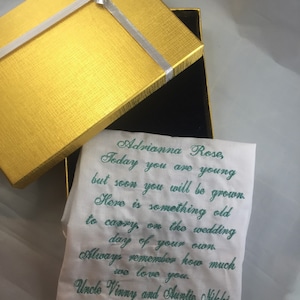 Adrianna Rose,
Today you are young
but soon you will be grown.
Here is something old
to carry, on the wedding
day of your own.
Always remember how much
we love you.
Uncle Vinny and Auntie